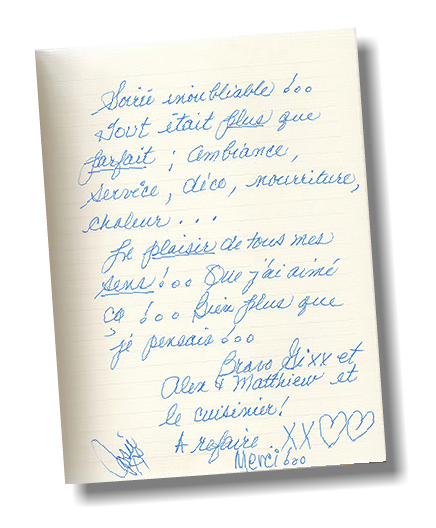 Soirée inoubliable !..
Tout était plus que
parfait ; ambiance,
service, déco, nourriture,
chaleur . . .
Le plaisir de tous mes
sens !.. Que j'ai aimé
ça !.. Bien plus que
je pensais !..
Bravo Gixx et
Alex & Matthiew et
le cuisinier!
A refaire XX♡♡
Merci !..